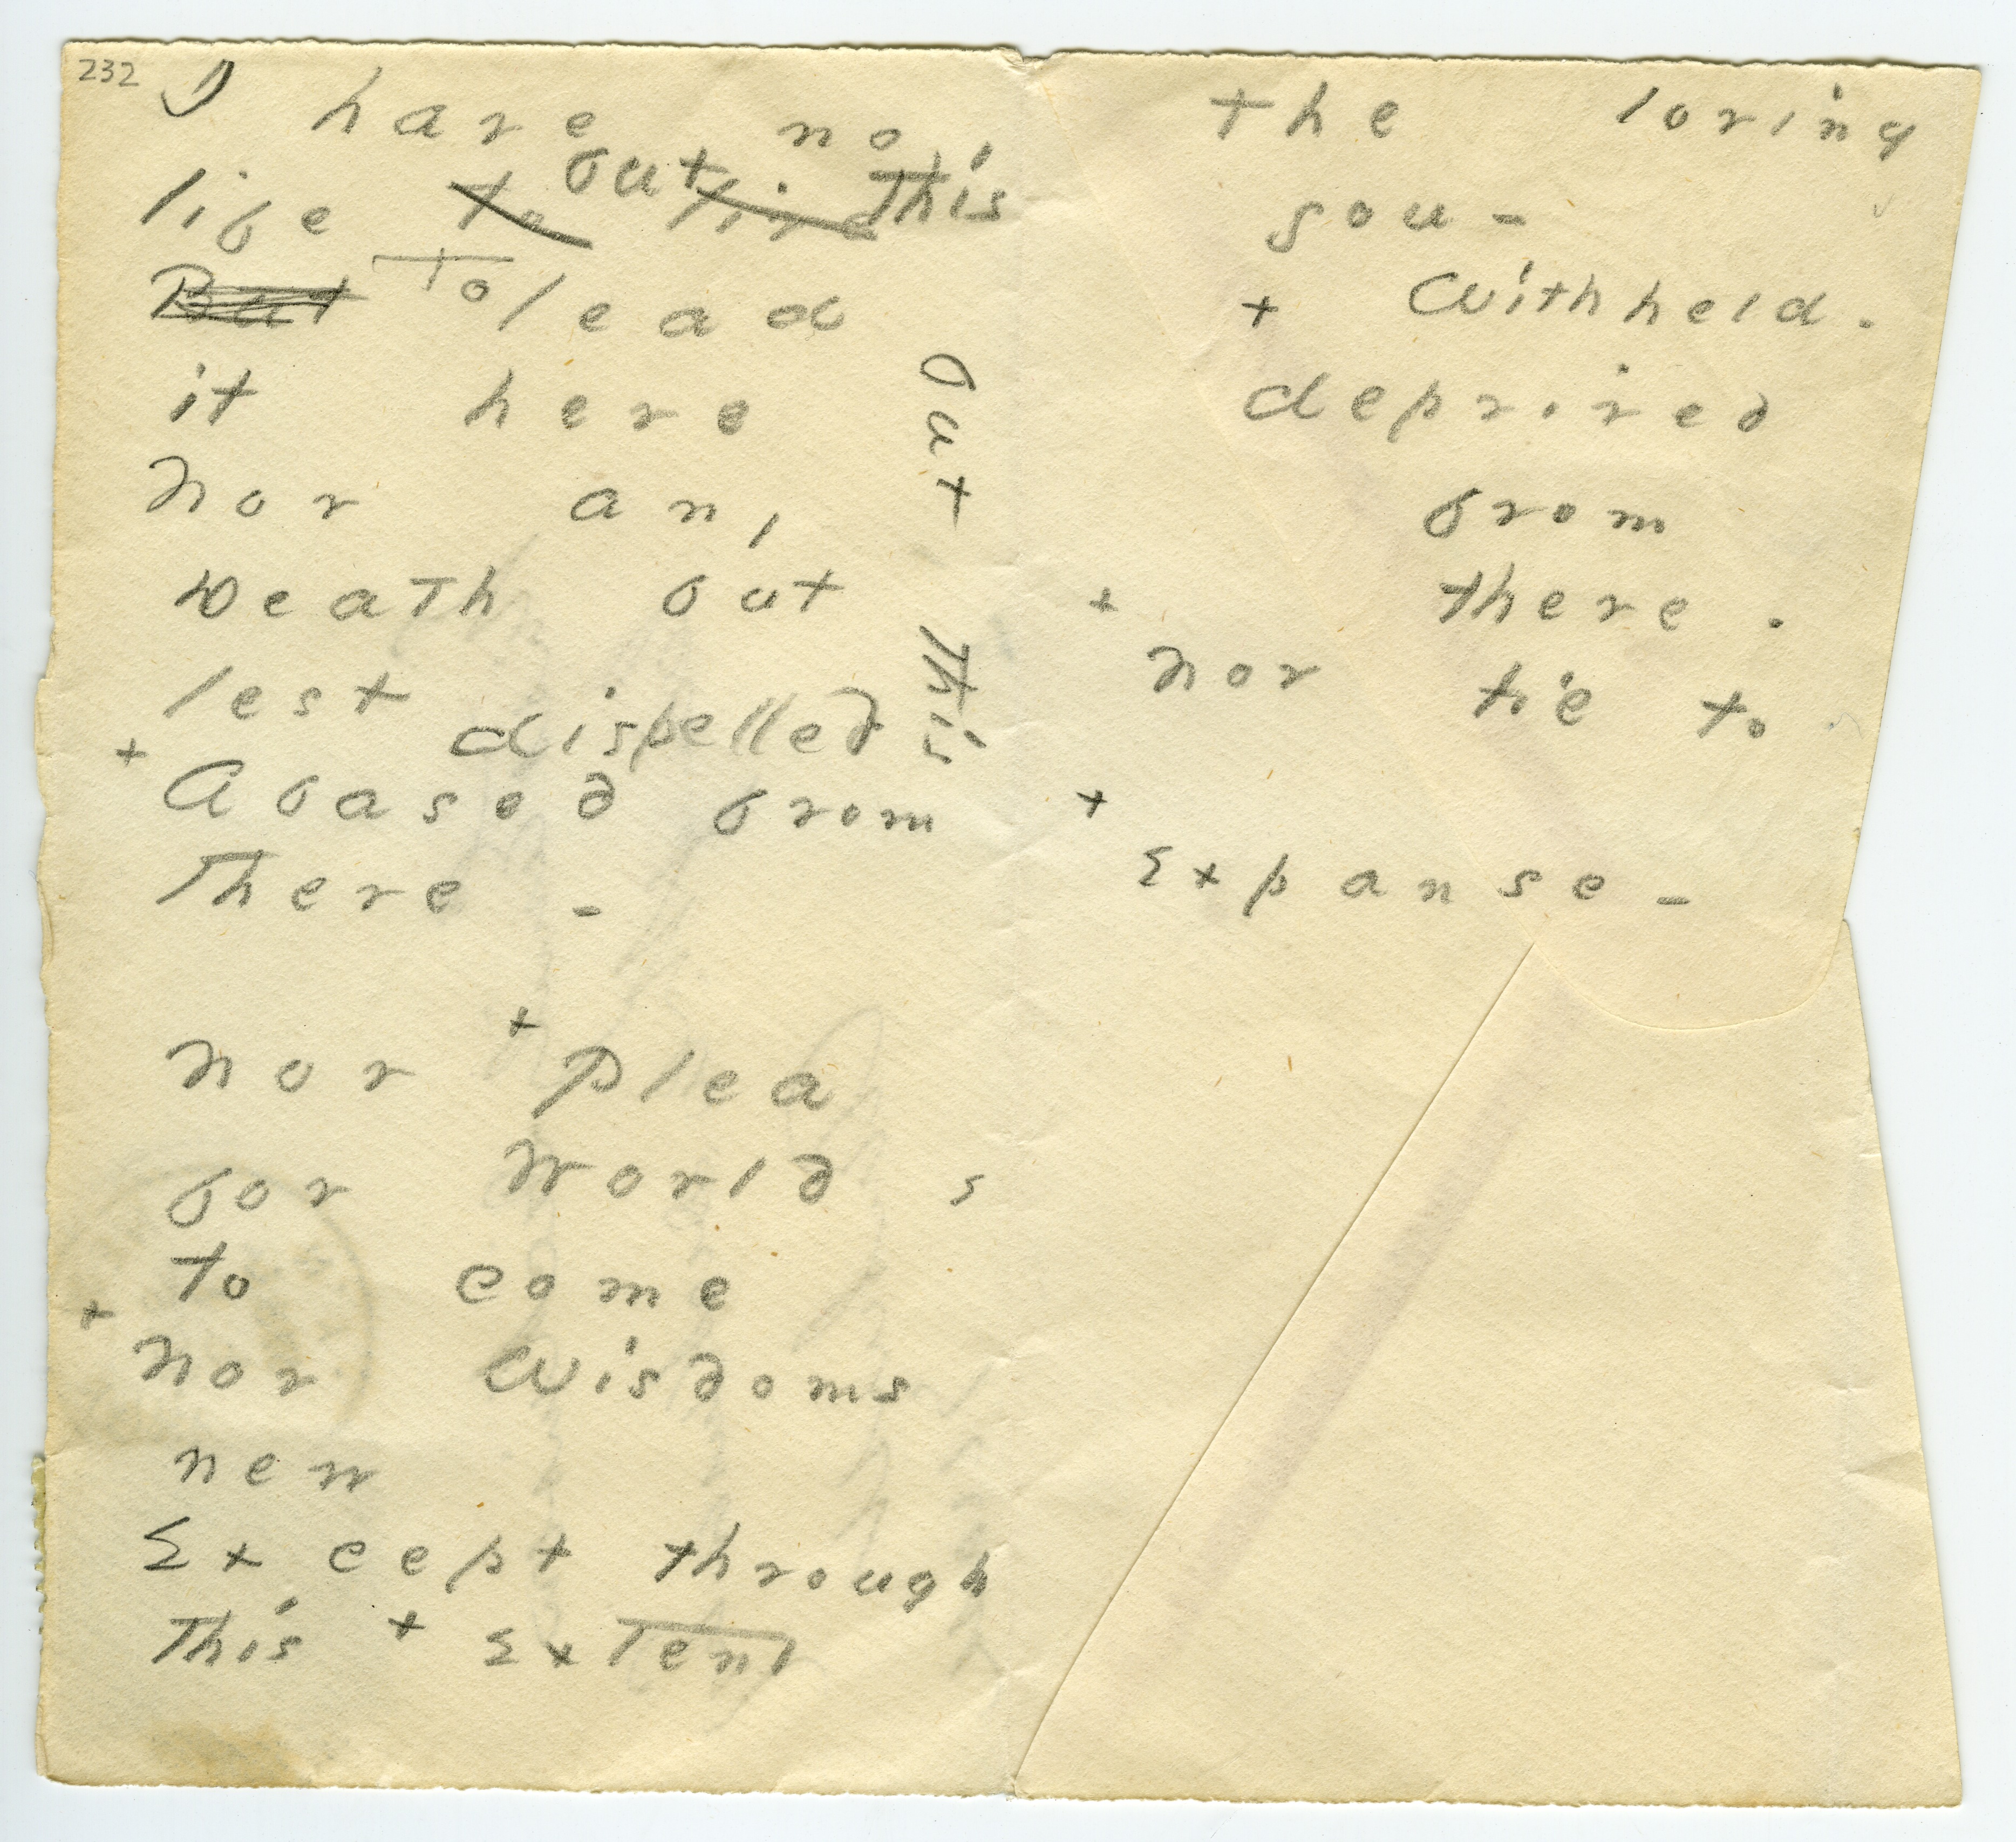 232
I have no
life to live but this
But To lead
it here
Nor any
Death but
lest dispelled
+ Abased from
There -
Nor + Plea
for World s
to come
+ Nor Wisdoms
new
Except through
This + Extent
but this
The loving
you -
+ Withheld.
deprived
from
+ there.
nor tie to
+
Expanse -